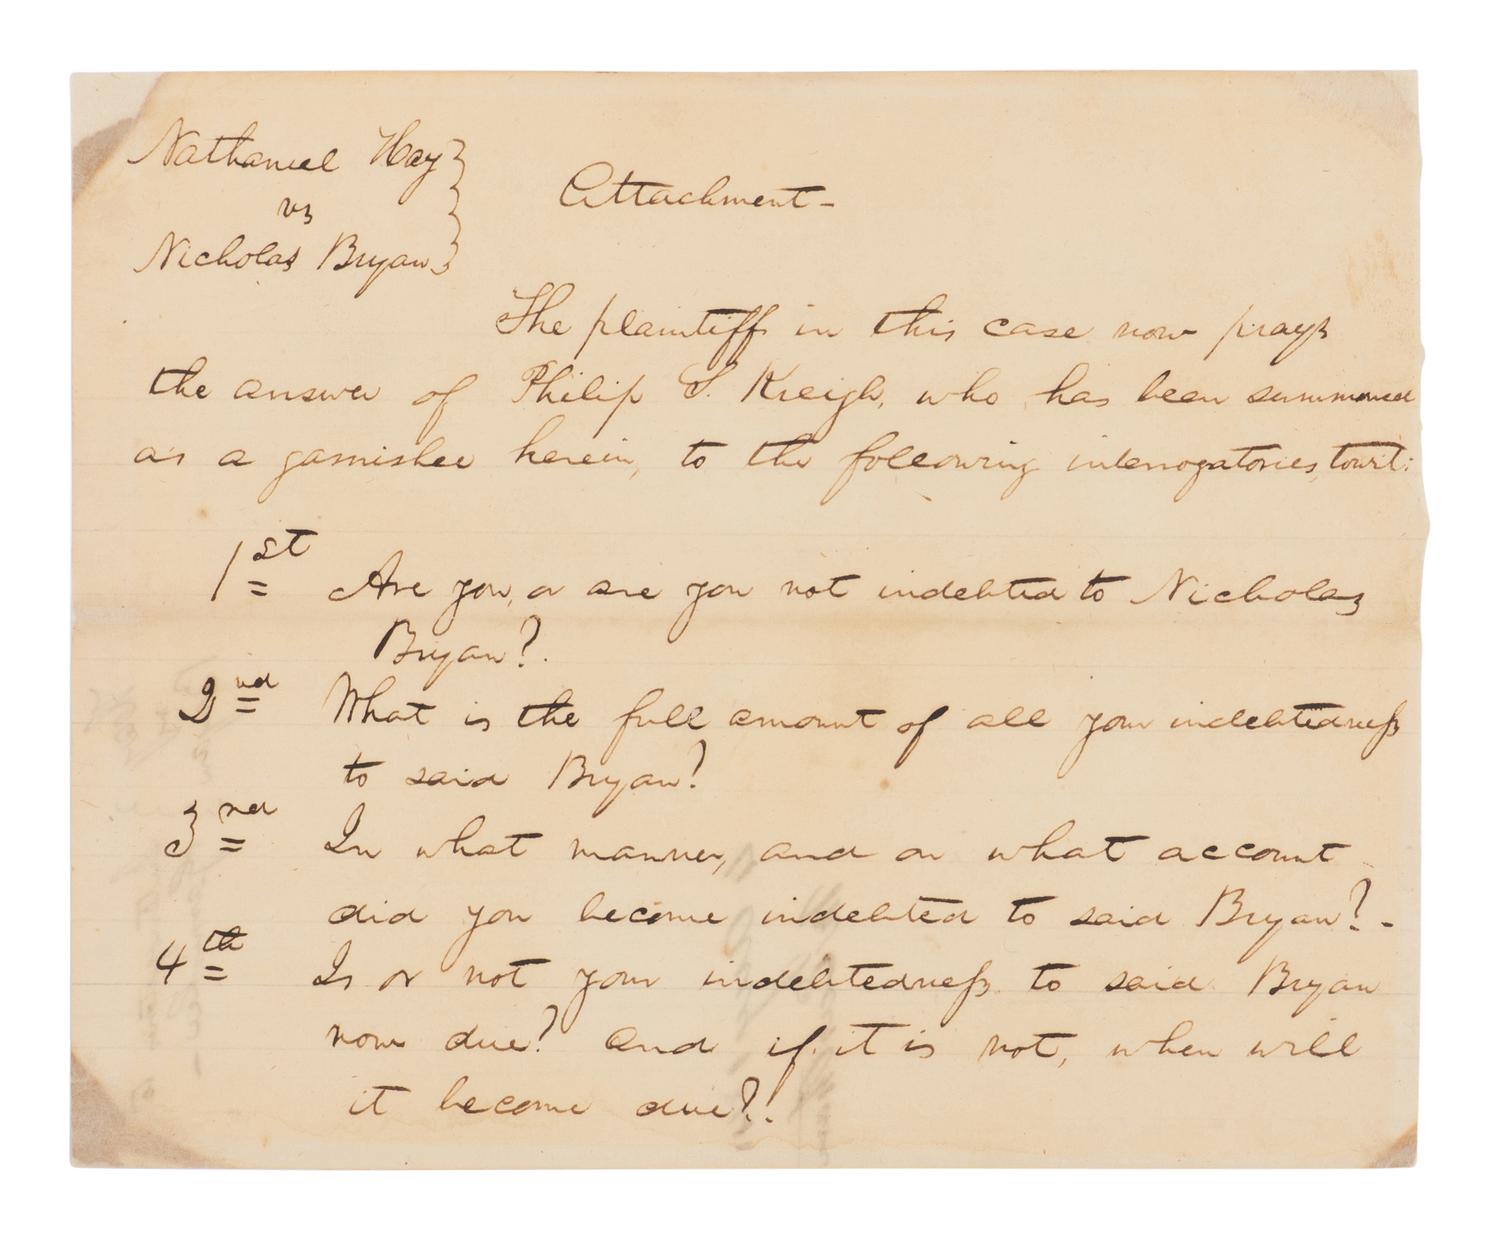 Nathaniel Hay
vs
Nicholas Bryan
Attachment -
The plaintiff in this case now prays
the answer of Philip S. Kreigh, who has been summoned
as a garnishee herein, to the following interrogatories, towit:
1st Are you, or are you not indebted to Nicholas
Bryan?.
2nd What is the full amount of all your indebtedness
to said Bryan?
3rd In what manner, and on what account
did you become indebted to said Bryan? -
4th Is or not your indebtedness to said Bryan
now due? and if it is not, when will
it become due?!